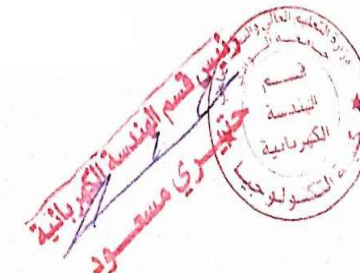 رئيس قسم الهندسة الكهربائية
مسعود
وزارة التعليم العالي
قسم
الهندسة
الكهربائية
التكنولوجيا